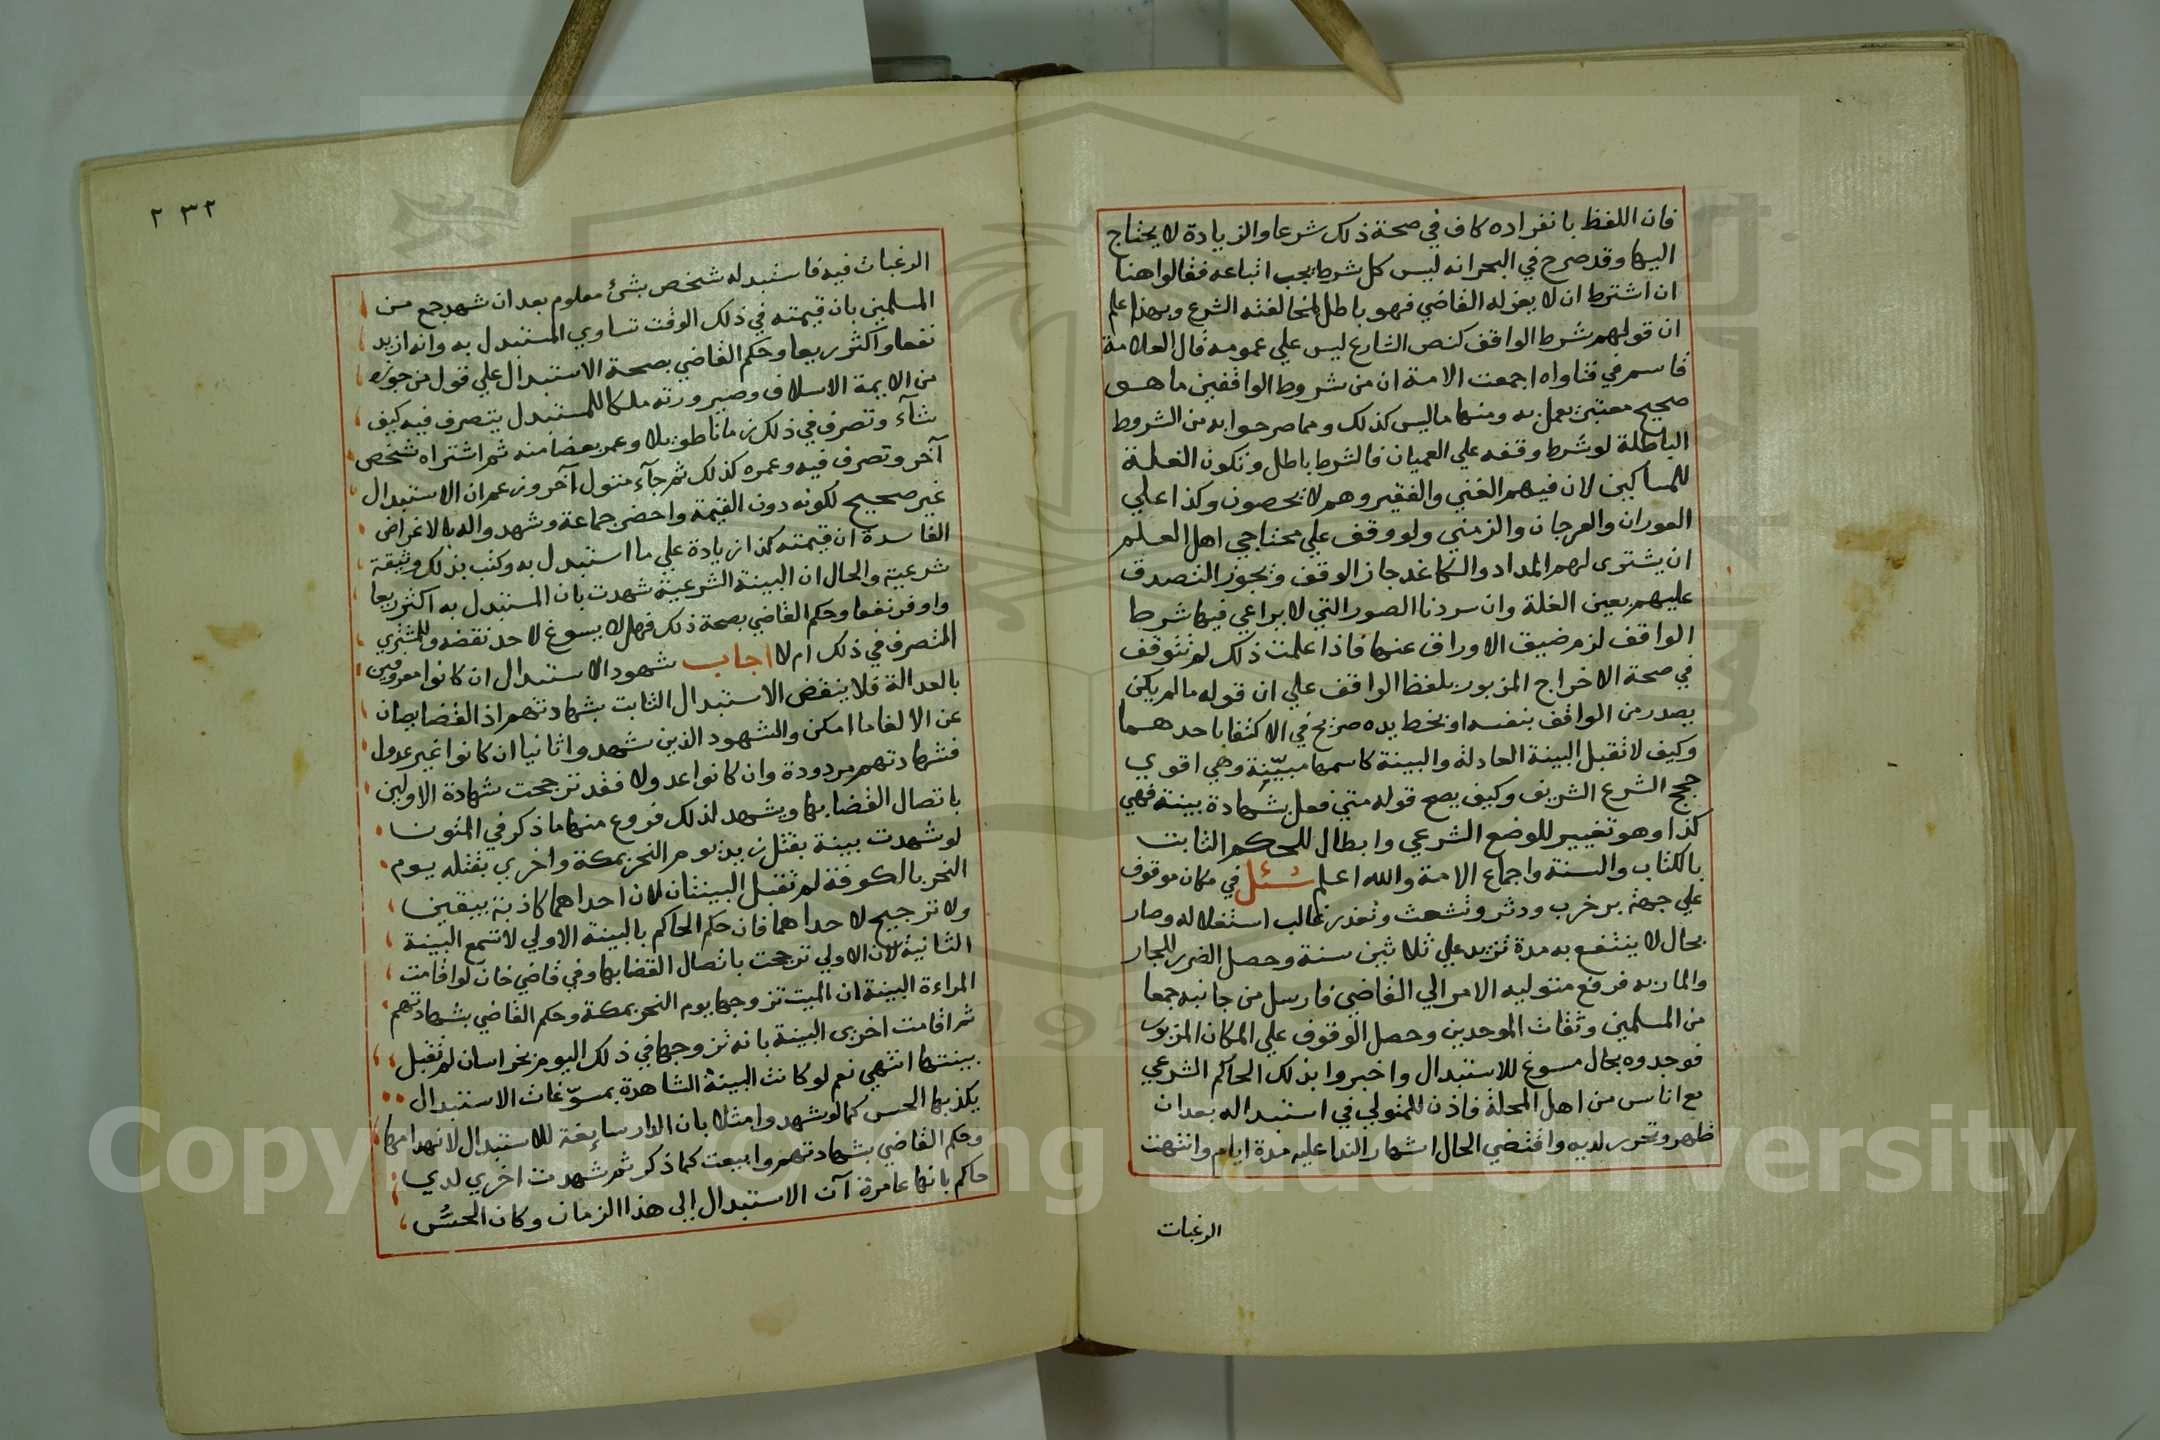 فان اللفظ بانفراده كاف في صحة ذلك شرعا والزيادة لا يحتاج
اليها وقد صرح في البحر انه ليس كل شرط يجب اتباعه فقالوا هنا
ان اشترط ان لا يعزله القاضي فهو باطل لمخالفته الشرع وبهذا علم
ان قولهم شرط الواقف كنص الشارع ليس علي عمومه قال العلامة
قاسم في فتاواه اجمعت الامة ان من شروط الواقفين ما هو
صحيح معتبر يعمل به ومنها ما ليس كذلك ومما صرحوا به من الشروط
الباطلة لو شرط وقفه علي العميان فالشرط باطل وتكون الغلة
للمساكين لان فيهم الغني والفقير وهم لا يحصون وكذا علي
العوران والعرجان والزمني ولو وقف علي محتاجي اهل العلم
ان يشتري لهم المداد والكاغد جاز الوقف ويجوز التصدق
عليهم بعين الغلة وان سردنا الصور التي لا يراعي فيها شرط
الواقف لزم ضيق الاوراق عنها فاذا علمت ذلك لم تتوقف
في صحة الاخراج المزبور بلفظ الواقف علي ان قوله ما لم يكن
يصدر من الواقف بنفسه او بخط يده صريح في الاكتفا باحدهما
وكيف لا تقبل البينة العادلة والبينة كاسمها مبيّنة وهي اقوي
حجج الشرع الشريف وكيف يصح قوله متي فعل بشهادة بينة فهي
كذا وهو تغيير للوضع الشرعي وابطال للحكم الثابت
بالكتاب والسنة واجماع الامة والله اعلم سئل في مكان موقوف
علي جهة بر خرب ودثر وتشعث وتعذر غالب استغلاله وصار
بحال لا ينتفع به مدة تزيد علي ثلاثين سنة وحصل الضرر للجار
والمار به فرفع متوليه الامر الي القاضي فارسل من جانبه جمعا
من المسلمين وثقات الموحدين وحصل الوقوف علي المكان المزبور
فوجدوه بحال مسوغ للاستبدال واخبروا بذلك الحاكم الشرعي
مع اناس من اهل المحلة فاذن للمتولي في استبداله بعد ان
ظهر وتحرر لديه واقتضي الحال اشهار الندا عليه مدة ايام وانتهت
الرغبات
٢٣٢
الرغبات فيه فاستبدله شخص بشئ معلوم بعد ان شهد جمع من
المسلمين بان قيمته في ذلك الوقت تساوي المستبدل به وانه ازيد
نفعا واكثر ريعا وحكم القاضي بصحة الاستبدال علي قول من جوزه
من الايمة الاسلاف وصيرورته ملكا للمستبدل يتصرف فيه كيف
شآء وتصرف في ذلك زمانا طويلا وعمر بعضا منه ثم اشتراه شخص
آخر وتصرف فيه وعمره كذلك ثم جآء متول آخر وزعم ان الاستبدال
غير صحيح لكونه دون القيمة واحضر جماعة وشهدوا له بالاغراض
الفاسدة ان قيمته كذا زيادة علي ما استبدل به وكتب بذلك وثيقة
شرعية والحال ان البينة الشرعية شهدت بان المستبدل به اكثر ريعا
واوفر نفعا وحكم القاضي بصحة ذلك فهل لا يسوغ لاحد نقضه وللمشتري
التصرف في ذلك ام لا اجاب شهود الاستبدال ان كانوا معروفين
بالعدالة فلا ينقض الاستبدال الثابت بشهادتهم اذ القضا يصان
عن الالغا ما امكن والشهود الذين شهدوا ثانيا ان كانوا غير عدول
فشهادتهم مردودة وان كانوا عدولا فقد ترجحت شهادة الاولين
باتصال القضا بها ويشهد لذلك فروع منها ما ذكر في المتون
لو شهدت بينة بقتل زيد يوم النحر بمكة واخري بقتله يوم
النحر بالكوفة لم تقبل البينتان لان احداهما كاذبة بيقين
ولا ترجيح لاحداهما فان حكم الحاكم بالبينة الاولي لا تسمع البينة
الثانية لان الاولي ترجحت باتصال القضا بها وفي قاضي خان لو اقامت
المراءة البينة ان الميت تزوجها يوم النحر بمكة وحكم القاضي بشهادتهم
ثم اقامت اخري البينة بانه تزوجها في ذلك اليوم بخراسان لم تقبل
بينتها انتهي نعم لو كانت البينة الشاهدة بمسوّغات الاستبدال
يكذبها الحس كما لو شهدوا مثلا بان الدار سايغة للاستبدال لانهدامها
وحكم القاضي بشهادتهم وابيعت كما ذكر ثم شهدت اخري لدي
حاكم بانها عامرة آن الاستبدال الي هذا الزمان وكان الحسّ
Copyright © King Saud University